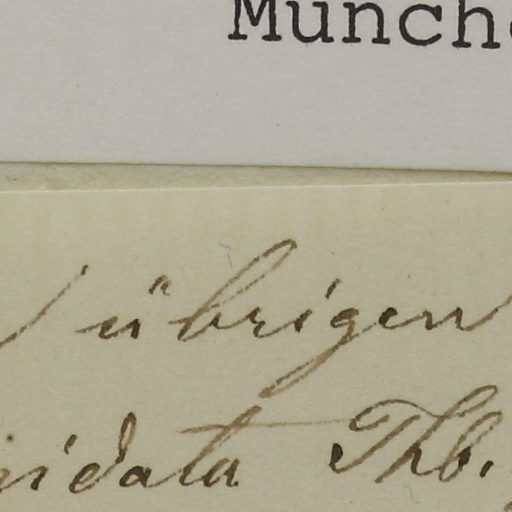 Münch
übrigen
idata Thb.